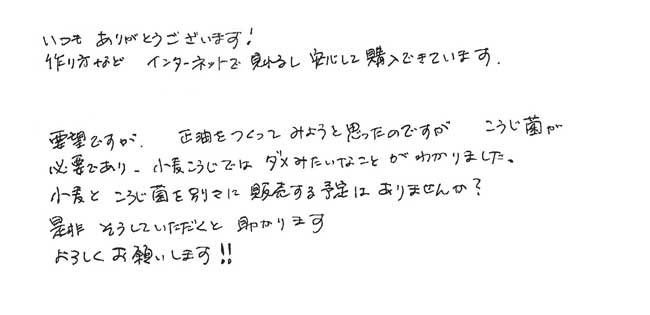 いつも ありがとうございます!
作り方など インターネットで見れるし 安心して購入できています.
要望ですが. 正油をつくってみようと思ったのですが こうじ菌が
必要であり、小麦こうじでは ダメみたいなことがわかりました。
小麦と こうじ菌を別々に 販売する予定は ありませんか?
是非 そうしていただくと 助かります
よろしくお願いします!!